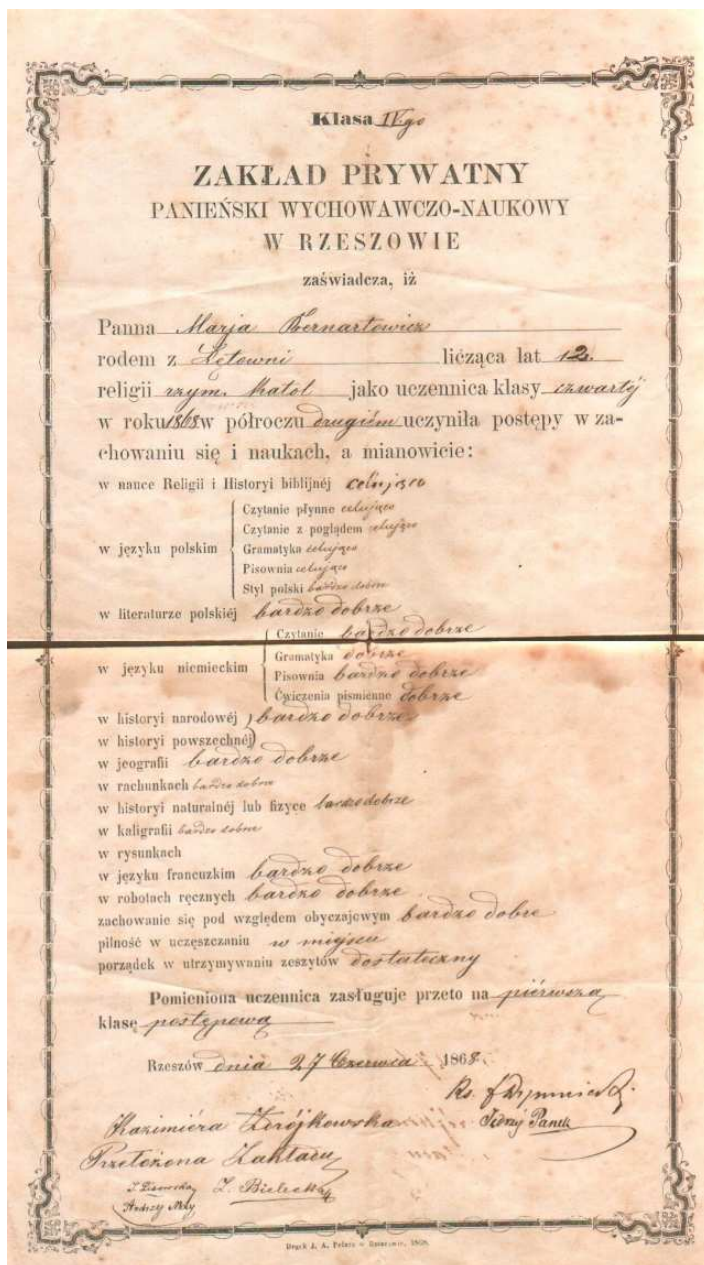 Klasa IVgo
ZAKŁAD PRYWATNY
PANIEŃSKI WYCHOWAWCZO-NAUKOWY
W RZESZOWIE
zaświadcza, iż
Panna Marja Bernartowicz
rodem z Łętowni licząca lat 12.
religii rzym. katol jako uczennica klasy czwartéj
w roku 1868 w półroczu drugiém uczyniła postępy w za-
chowaniu się i naukach, a mianowicie:
w nauce Religii i Historyi biblijnéj celująco
Czytanie płynne celująco
Czytanie z poglądem celująco
w języku polskim Gramatyka celująco
Pisownia celująco
Styl polski bardzo dobrze
w literaturze polskiéj bardzo dobrze
Czytanie bardzo dobrze
w języku niemieckim Gramatyka dobrze
Pisownia bardzo dobrze
Ćwiczenia piśmienne dobrze
w historyi narodowéj } bardzo dobrze
w historyi powszechnéj
w jeografii bardzo dobrze
w rachunkach bardzo dobrze
w historyi naturalnéj lub fizyce bardzo dobrze
w kaligrafii bardzo dobrze
w rysunkach
w języku francuzkim bardzo dobrze
w robotach ręcznych bardzo dobrze
zachowanie się pod względem obyczajowym bardzo dobre
pilność w uczęszczaniu w miejscu
porządek w utrzymywaniu zeszytów dostateczny
Pomieniona uczennica zasługuje przeto na piérwszą
klasę postępową
Rzeszów dnia 27 Czerwca 1868.
Ks.
Kazimiéra Zdrójkowska Jędrzéj Panek
Przełożona Zakładu
Z. Bielecka
Druk J. A. Pelara w Rzeszowie, 1868.